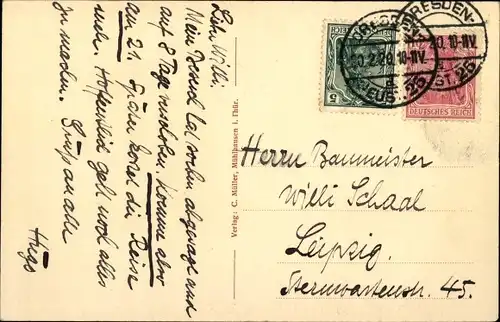 Lieber Willi.
Mein Besuch bei
abgesagt und
auf 8 Tage verschoben. Komme aber
am 21. Später kostet die Reise
mehr. Hoffentlich geht noch alles
zu machen. Gruß an alle
Hugo
Verlag: C. Müller, Mühlhausen i. Thür.
DRESDEN-
.2.20.10-11V.
25
DRESDEN-
20.10-11V.
ST.25
DEUTSCHES REICH
5
Herrn Baumeister
Willi Schaal
Leipzig.
Sternwartenstr. 45.